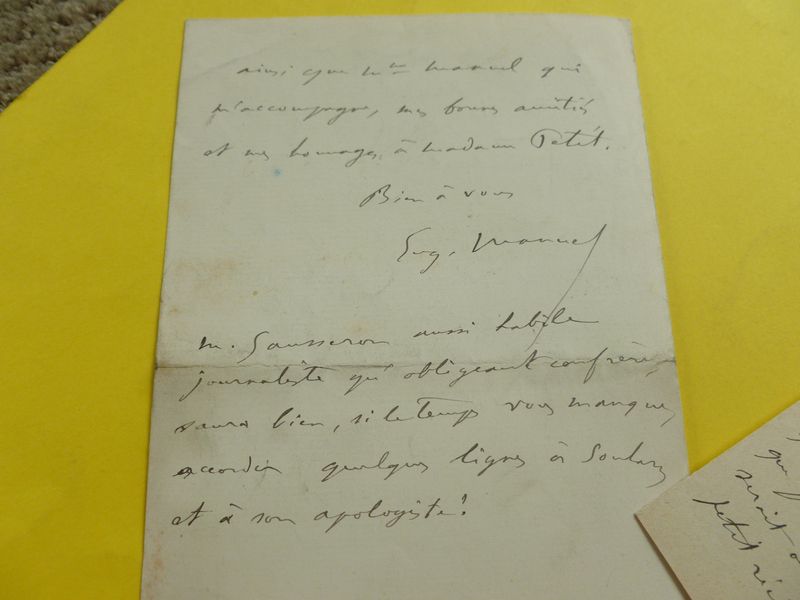 ainsi que Mme Manuel qui
m'accompagne, mes bonnes amitiés
et mes hommages à madame Petit.
Bien à vous
Eug. Manuel
M. Gausseron aussi habile
journaliste qu'obligeant confrère,
saura bien, si le temps vous manque,
accorder quelques lignes à Soulary
et à son apologiste!
que
serait
petit